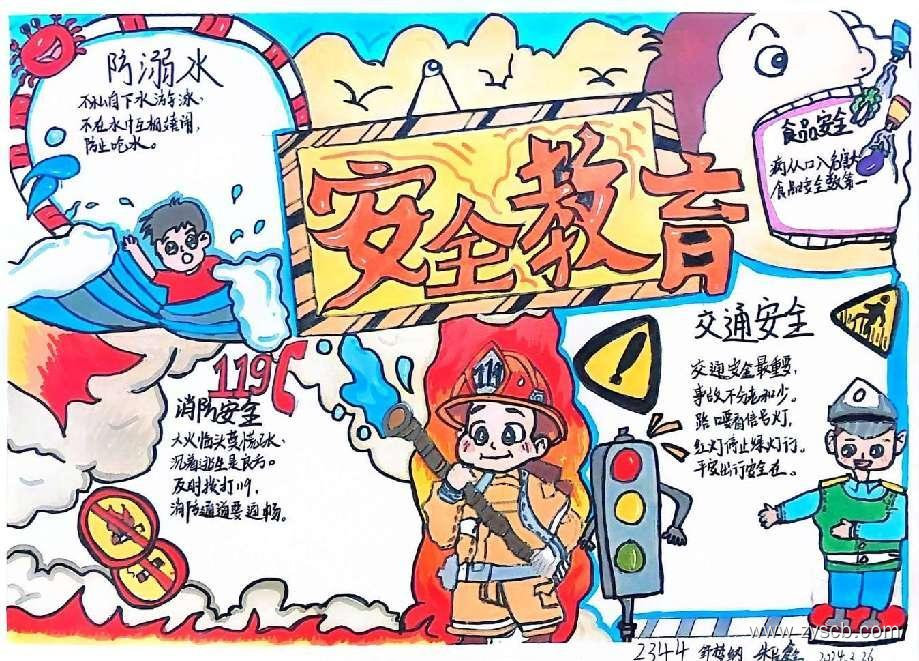 防溺水
不私自下水游泳,
不在水中互相嬉闹,
防止呛水。
安全教育
食品安全
病从口入危害大
食品安全数第一
119
消防安全
大火临头莫慌乱,
沉着逃生是良方。
及时拨打119,
消防通道要通畅。
119
交通安全
交通安全最重要,
事故不分老和少。
路口要看信号灯,
红灯停止绿灯行。
平安出行安全在。
2344
2024.2.26
www.zyscb.com